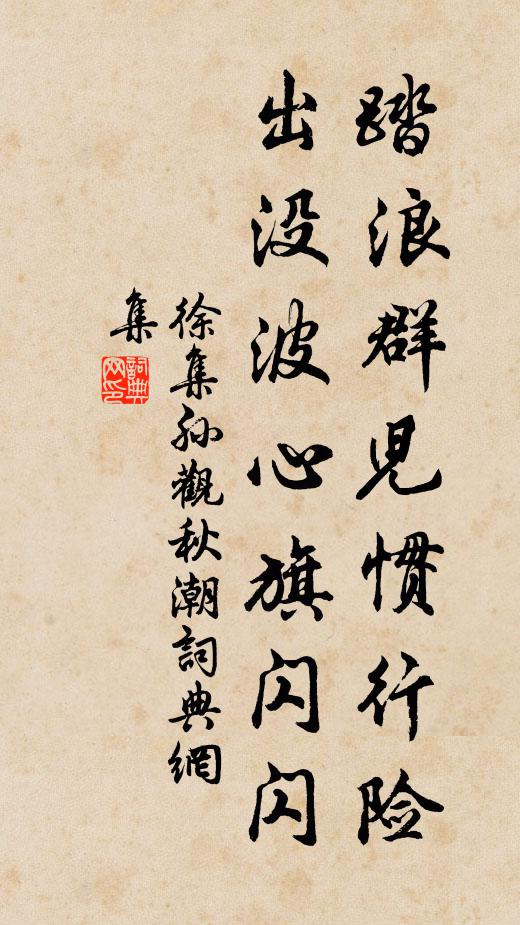 踏浪群児惯行险
出没波心旗闪闪
徐集孙觀秋潮詞典網
集
詞典网印